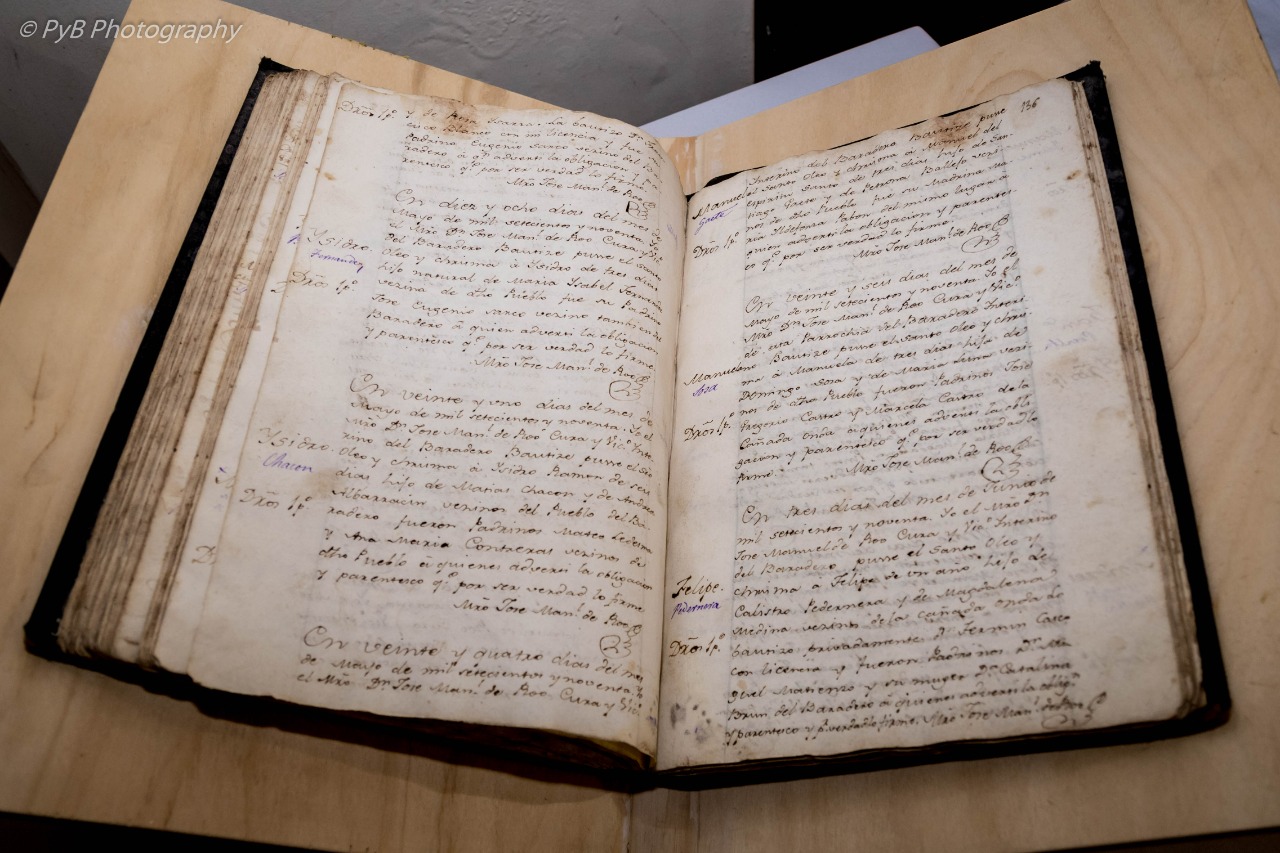 © PyB Photography
Dxõs lp.º
y de Rosa Ibarra. La bautizo
con mi licencia y fue
Padrino Eugenio Sarco vecino del
radero â q.n adverti la obligacion y
rentesco q.e por ser verdad lo firme
Mro Jose Man.l de Roo
En diez y ocho dias del mes de
Mayo de mil setecientos y noventa. Yo
el Mro D.n Jose Man.l de Roo Cura y Vic.o
del Baradero Bautize puse el Santo
Ysidro.
Oleo y chrisma â Isidro de tres dias
Fernandez
hijo natural de Maria Isabel Fernandez
Dxõs lp.º
vezina de dho Pueblo fue su Padrino
Jose Eugenio Sarco vezino tambien del
Baradero â quien adverti la obligacion
y parentesco q.e por ser verdad lo firme
Mro Jose Man.l de Roo
En veinte y uno dias del mes de
Mayo de mil setecientos y noventa. Yo el
Mro D.n Jose Man.l de Roo Cura y Vic.o Inte
rino del Baradero Bautize puse el Sto
Ysidro.
Oleo y chrisma â Isidro Ramon de seis
Chacon
dias hijo de Matias Chacon y de Andrea
Albarracin vezinos del Pueblo del Ba
Dxõs lp.º
radero fueron Padrinos Mateo Ledesma
y Ana Maria Contreras vezinos de
dho Pueblo â quienes adverti la obligacion
y parentesco q.e por ser verdad lo firme
Mro Jose Man.l de Roo
En veinte y quatro dias del mes
de Mayo de mil setecientos y noventa. Yo
el Mro D.n Jose Man.l de Roo Cura y Vic.o
136
Interino del Baradero Bautize puse
Manuel
el Santo Oleo y chrisma â Manuel del
Gaete
Espiritu Santo de tres dias hijo de San
tiago Gaete y de Petrona Ballejo vezi
nos de dho Pueblo fue su Madrina Ma
Dxõs lp.º
ria Ildefonsa Pabon del mismo lugar â
quien adverti la obligacion y parentes
co q.e por ser verdad lo firme
Mro Jose Man.l de Roo
En veinte y seis dias del mes de
Mayo de mil setecientos y noventa Yo el
Mro D.n Jose Man.l de Roo Cura y Vic.o
de esta Parrochia del Baradero Interi
Manuela
no Bautize puse el Santo Oleo y chris
Sosa
ma â Manuela de tres dias hija de
Domingo Sosa y de Maria vezi
nos de dho Pueblo fueron Padrinos Jose
Dxõs lp.º
Gregorio Castro y Marcela Castro de la
Cañada Onda â quienes adverti la obli
gacion y parentesco q.e por ser verdad lo
firme. Mro Jose Man.l de Roo
En tres dias del mes de Junio de
mil setecientos y noventa. Yo el Mro D.n
Jose Manuel de Roo Cura y Vic.o Interino
del Baradero puse el Santo Oleo y
Felipe.
chrisma a Felipe de un año hijo de
Pedernera
Calistro Pedernera y de Magdalena
Medina vezinos de la Cañada Onda lo
Dxõs lp.º
bautizo privadamente D. Fermin Casco
con licencia y fueron Padrinos D.n Mi
guel Matienzo y su muger D.a Catalina
Brun del Baradero â quienes adverti la oblig.n
y parentesco y p.r verdad lo firme. Mro Jose Man.l de Roo